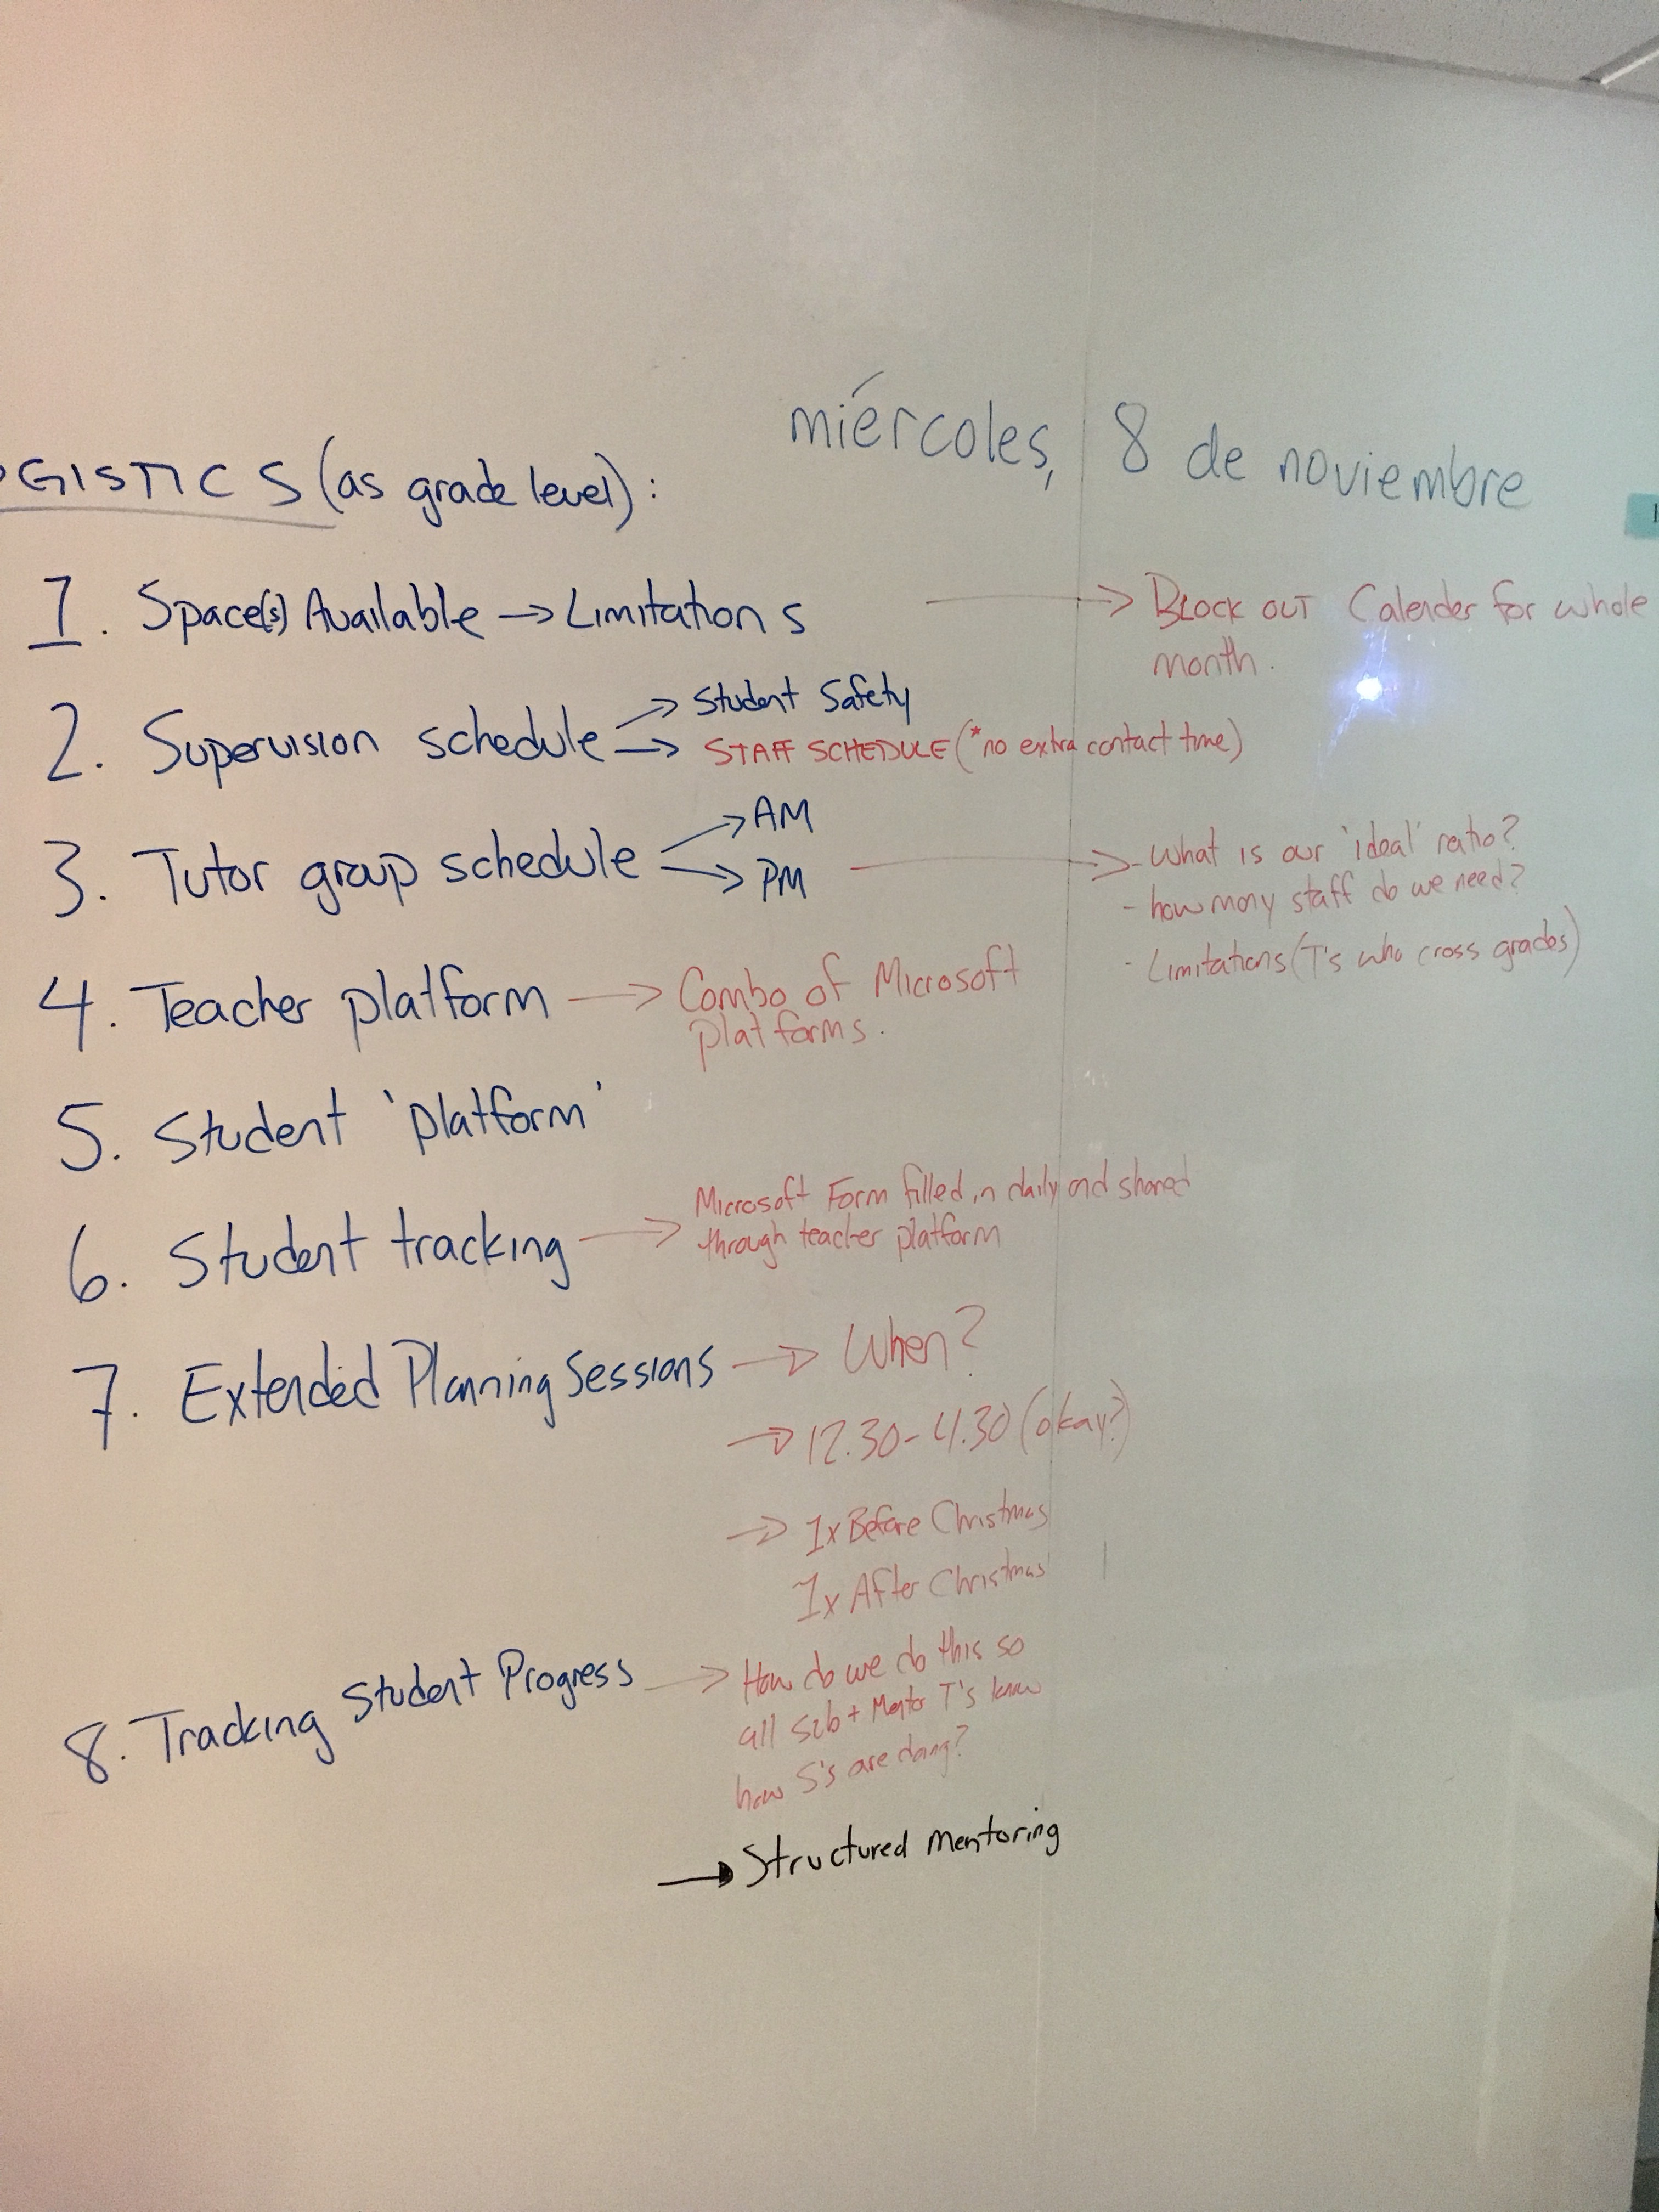 miércoles, 8 de noviembre
OGISTICS (as grade level):
1. Space(s) Available → Limitations → BLOCK OUT Calender for whole
month.
2. Supervision schedule → Student Safety
→ STAFF SCHEDULE (*no extra contact time)
3. Tutor group schedule → AM
→ PM → - What is our 'ideal' ratio?
- how many staff do we need?
- Limitations (T's who cross grades)
4. Teacher platform → Combo of Microsoft
platforms.
5. Student 'platform'
6. Student tracking → Microsoft Form filled in daily and shared
through teacher platform
7. Extended Planning Sessions → When?
→ 12.30-4.30 (okay?)
→ 1x Before Christmas
1x After Christmas
8. Tracking Student Progress → How do we do this so
all sub + Mentor T's know
how S's are doing?
→ Structured mentoring